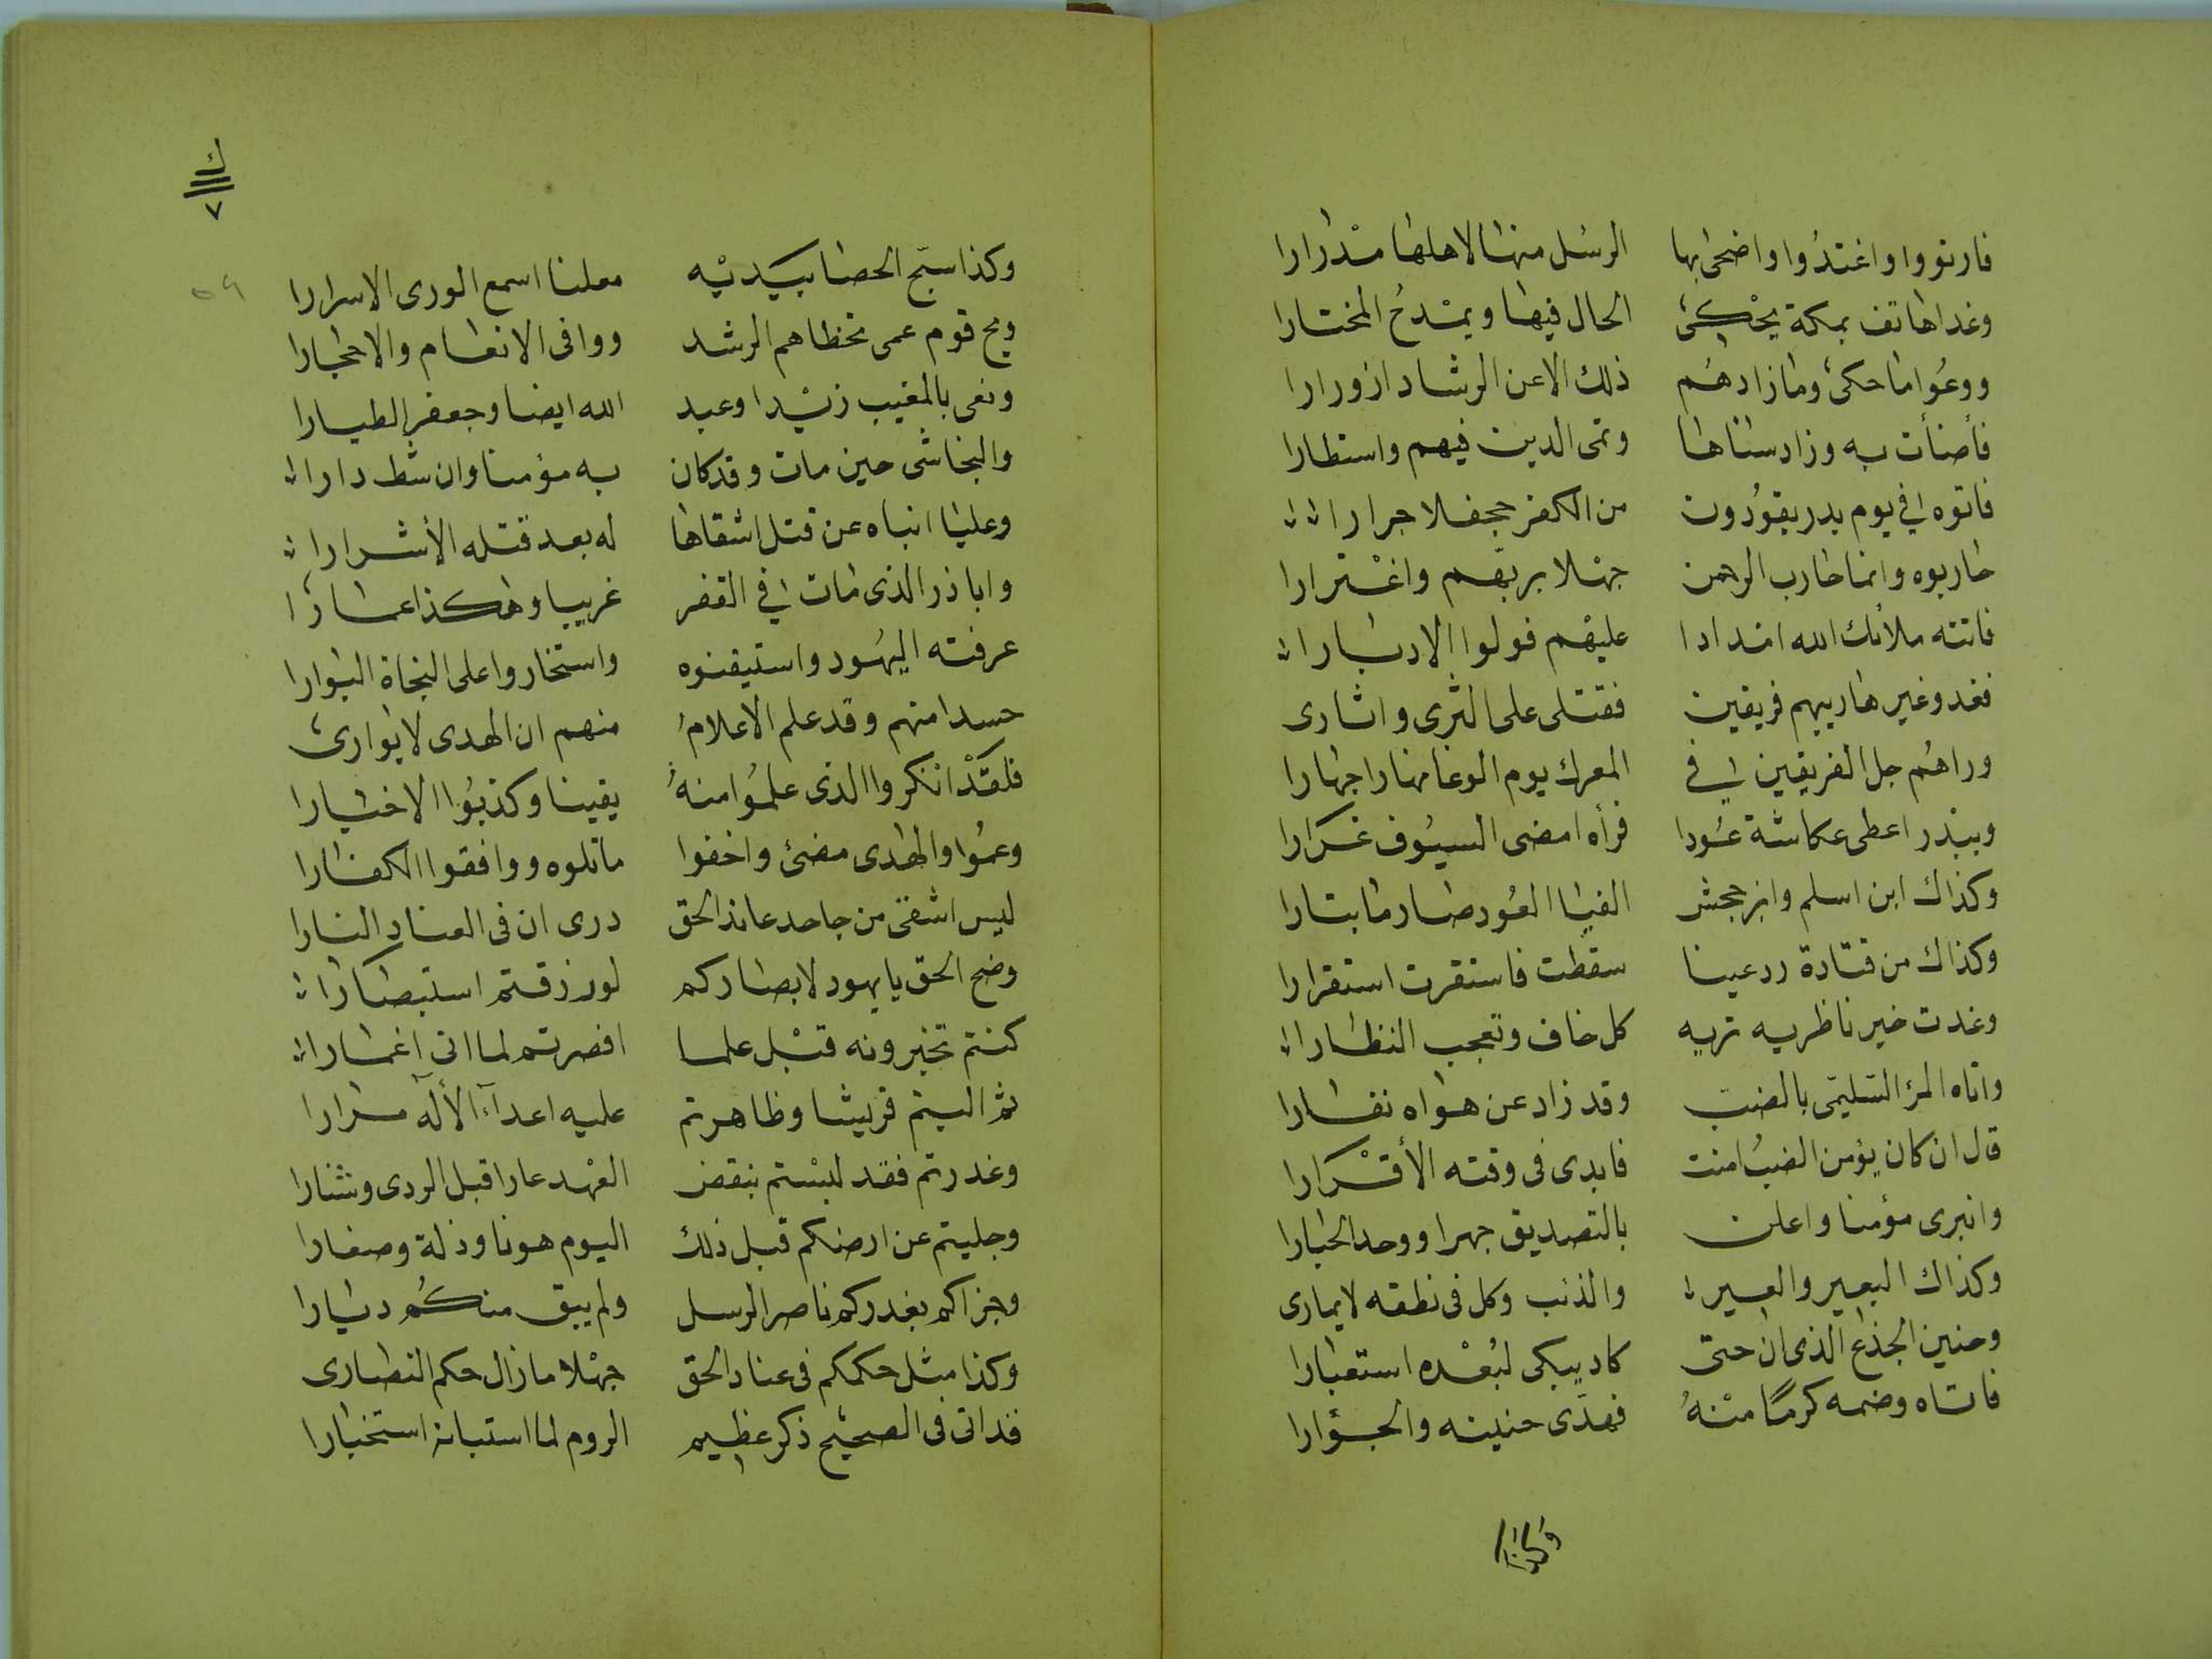 فارتووا واغتدُوا واضحى بها الرسُل منها لاهلها مدرارا
وغدا هاتف بمكة يحْكى الحال فيها ويمْدحُ المختارا
ووعُوا ما حكى وما زادهُم ذلك الا عن الرشاد ازورارا
فأضأت به وزاد سناها ونمى الدين فيهم واستطارا
فاتوه في يوم بدر يقوُدون من الكفر جحفلا جرارا
حاربوه وانما حارب الرحمن جهْلا بربهم واغْترارا
فاتته ملائك الله امدادا عليهم فولوا الادبارا
فغدو غير هاربيهم فريقين فقتلى على الثرى واسارى
وراهُم جل الفريقين في المعرك يوم الوغا نهارا جهارا
وببدر اعطى عكاشة عُودا فرأه امضى السيُوف غرارا
وكذاك ابن اسلم وابن جحش الفيا العُود صارما بتارا
وكذاك من قتادة رد عينا سقطت فاستقرت استقرارا
وغدت خير ناظريه تريه كل خاف وتعجب النظارا
واتاه المرء السّليمى بالضب وقد زاد عن هواه نفارا
قال ان كان يؤمن الضبُ امنت فابدى فى وقته الأقْرارا
وانبرى مؤمنا واعلن بالتصديق جهرا ووحد الجبارا
وكذاك البعير والعير والذئب وكل فى نطقه لا يمارى
وحنين الجذع الذى ان حتى كاد يبكى لبُعْده استعبارا
فاتاه وضمه كرما منْهُ فهدى حنينه والجؤارا
وكذا
ك
٧
٥٩
وكذا سبّح الحصا بيديْه معلنا اسمع الورى الاسرارا
ويح قوم عمى تخطاهم الرشد ووافى الانعام والاحجارا
ونعى بالمغيب زيْدا وعبد الله ايضا وجعفر الطيارا
والنجاشى حين مات وقد كان به مؤمنا وان شط دارا
وعليا انباه عن قتل اشقاها له بعد قتله الأشرارا
وابا ذر الذى مات في القفر غريبا وهكذا عمارا
عرفته اليهُود واستيقنوه واستخاروا على النجاة البوارا
حسدا منهم وقد علم الاعلامُ منهم ان الهدى لا يوارى
فلقدْ انكروا الذى علمُوا منهُ يقينا وكذبُوا الاخبارا
وعمُوا والهدى مضئ واخفوا ما تلوه ووافقوا الكفارا
ليس اشقى من جاحد عاند الحق درى ان فى العناد النارا
وضح الحق يا يهود لابصاركم لو رزقتم استبصارا
كنتم تخبرونه قبْل علما افصرتم لما اتى اغمارا
ثم اليتم قريشا وظاهرتم عليه اعدآء الأله مرارا
وغدرتم فقد لبسْتم بنقض العهْد عارا قبل الردى وشنارا
وجليتم عن ارضكم قبل ذلك اليوم هونا وذلة وصغارا
وجزاكم بغدركم ناصر الرسل ولم يبق منكُم ديارا
وكذا مثل حكمكم فى عناد الحق جهْلا ما زال حكم النصارى
قد اتى فى الصحيح ذكر عظيم الروم لما استبانه استخبارا